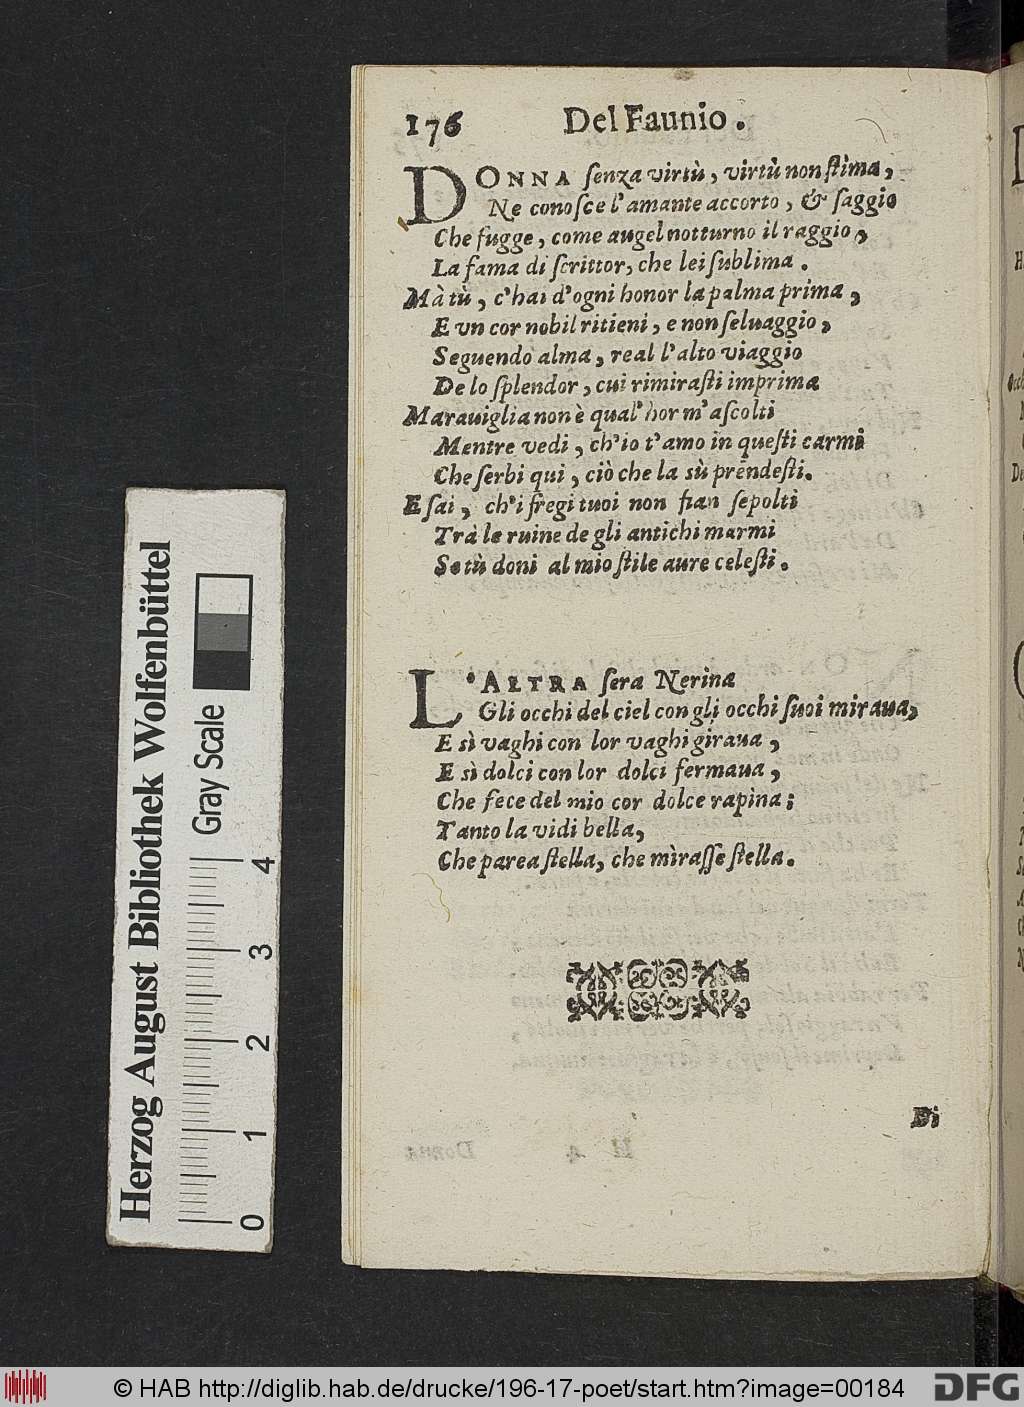 176 Del Faunio.
DONNA ſenza virtù, virtù non ſtìma,
Ne conoſce l'amante accorto, & ſaggio
Che fugge, come augel notturno il raggio,
La fama di ſcrittor, che lei ſublima.
Mà tù, c'hai d'ogni honor la palma prima,
E vn cor nobil ritieni, e non ſeluaggio,
Seguendo alma, real l'alto viaggio
De lo ſplendor, cui rimiraſti imprima
Marauiglia non è qual' hor m' aſcolti
Mentre vedi, ch'io t'amo in queſti carmi
Che ſerbi qui, ciò che la sù prēndeſti.
E ſai, ch'i fregi tuoi non fian ſepolti
Trà le ruine de gli antichi marmi
Se tù doni al mio ſtile aure celeſti.
L'ALTRA ſera Nerina
Gli occhi del ciel con gli occhi ſuoi miraua,
E sì vaghi con lor vaghi giraua,
E sì dolci con lor dolci fermaua,
Che fece del mio cor dolce rapìna;
Tanto la vidi bella,
Che parea ſtella, che mìraſſe ſtella.
Di
Herzog August Bibliothek Wolfenbüttel
Gray Scale
0 1 2 3 4
© HAB http://diglib.hab.de/drucke/196-17-poet/start.htm?image=00184
DFG